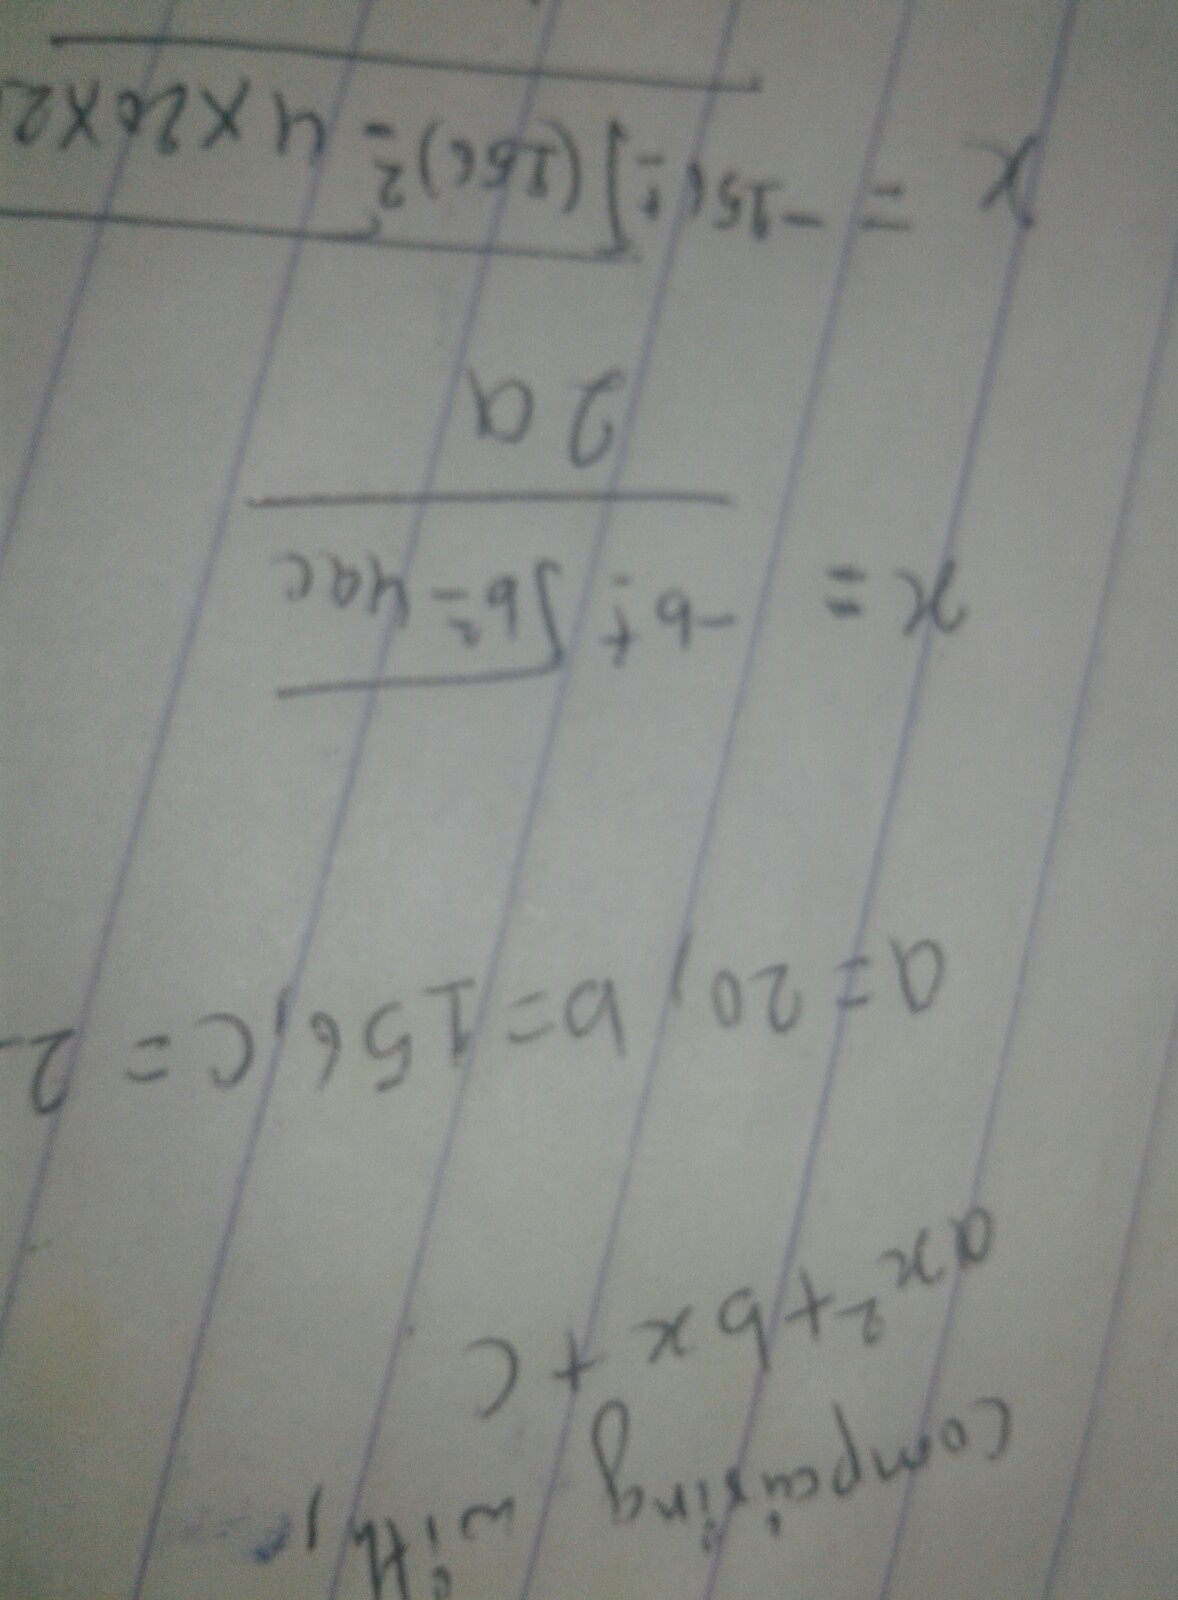 comparing with,
ax²+bx+c
a=20, b=156, c=2
x= -b±√b²-4ac
2a
x = -156±√(156)²-4x20x2